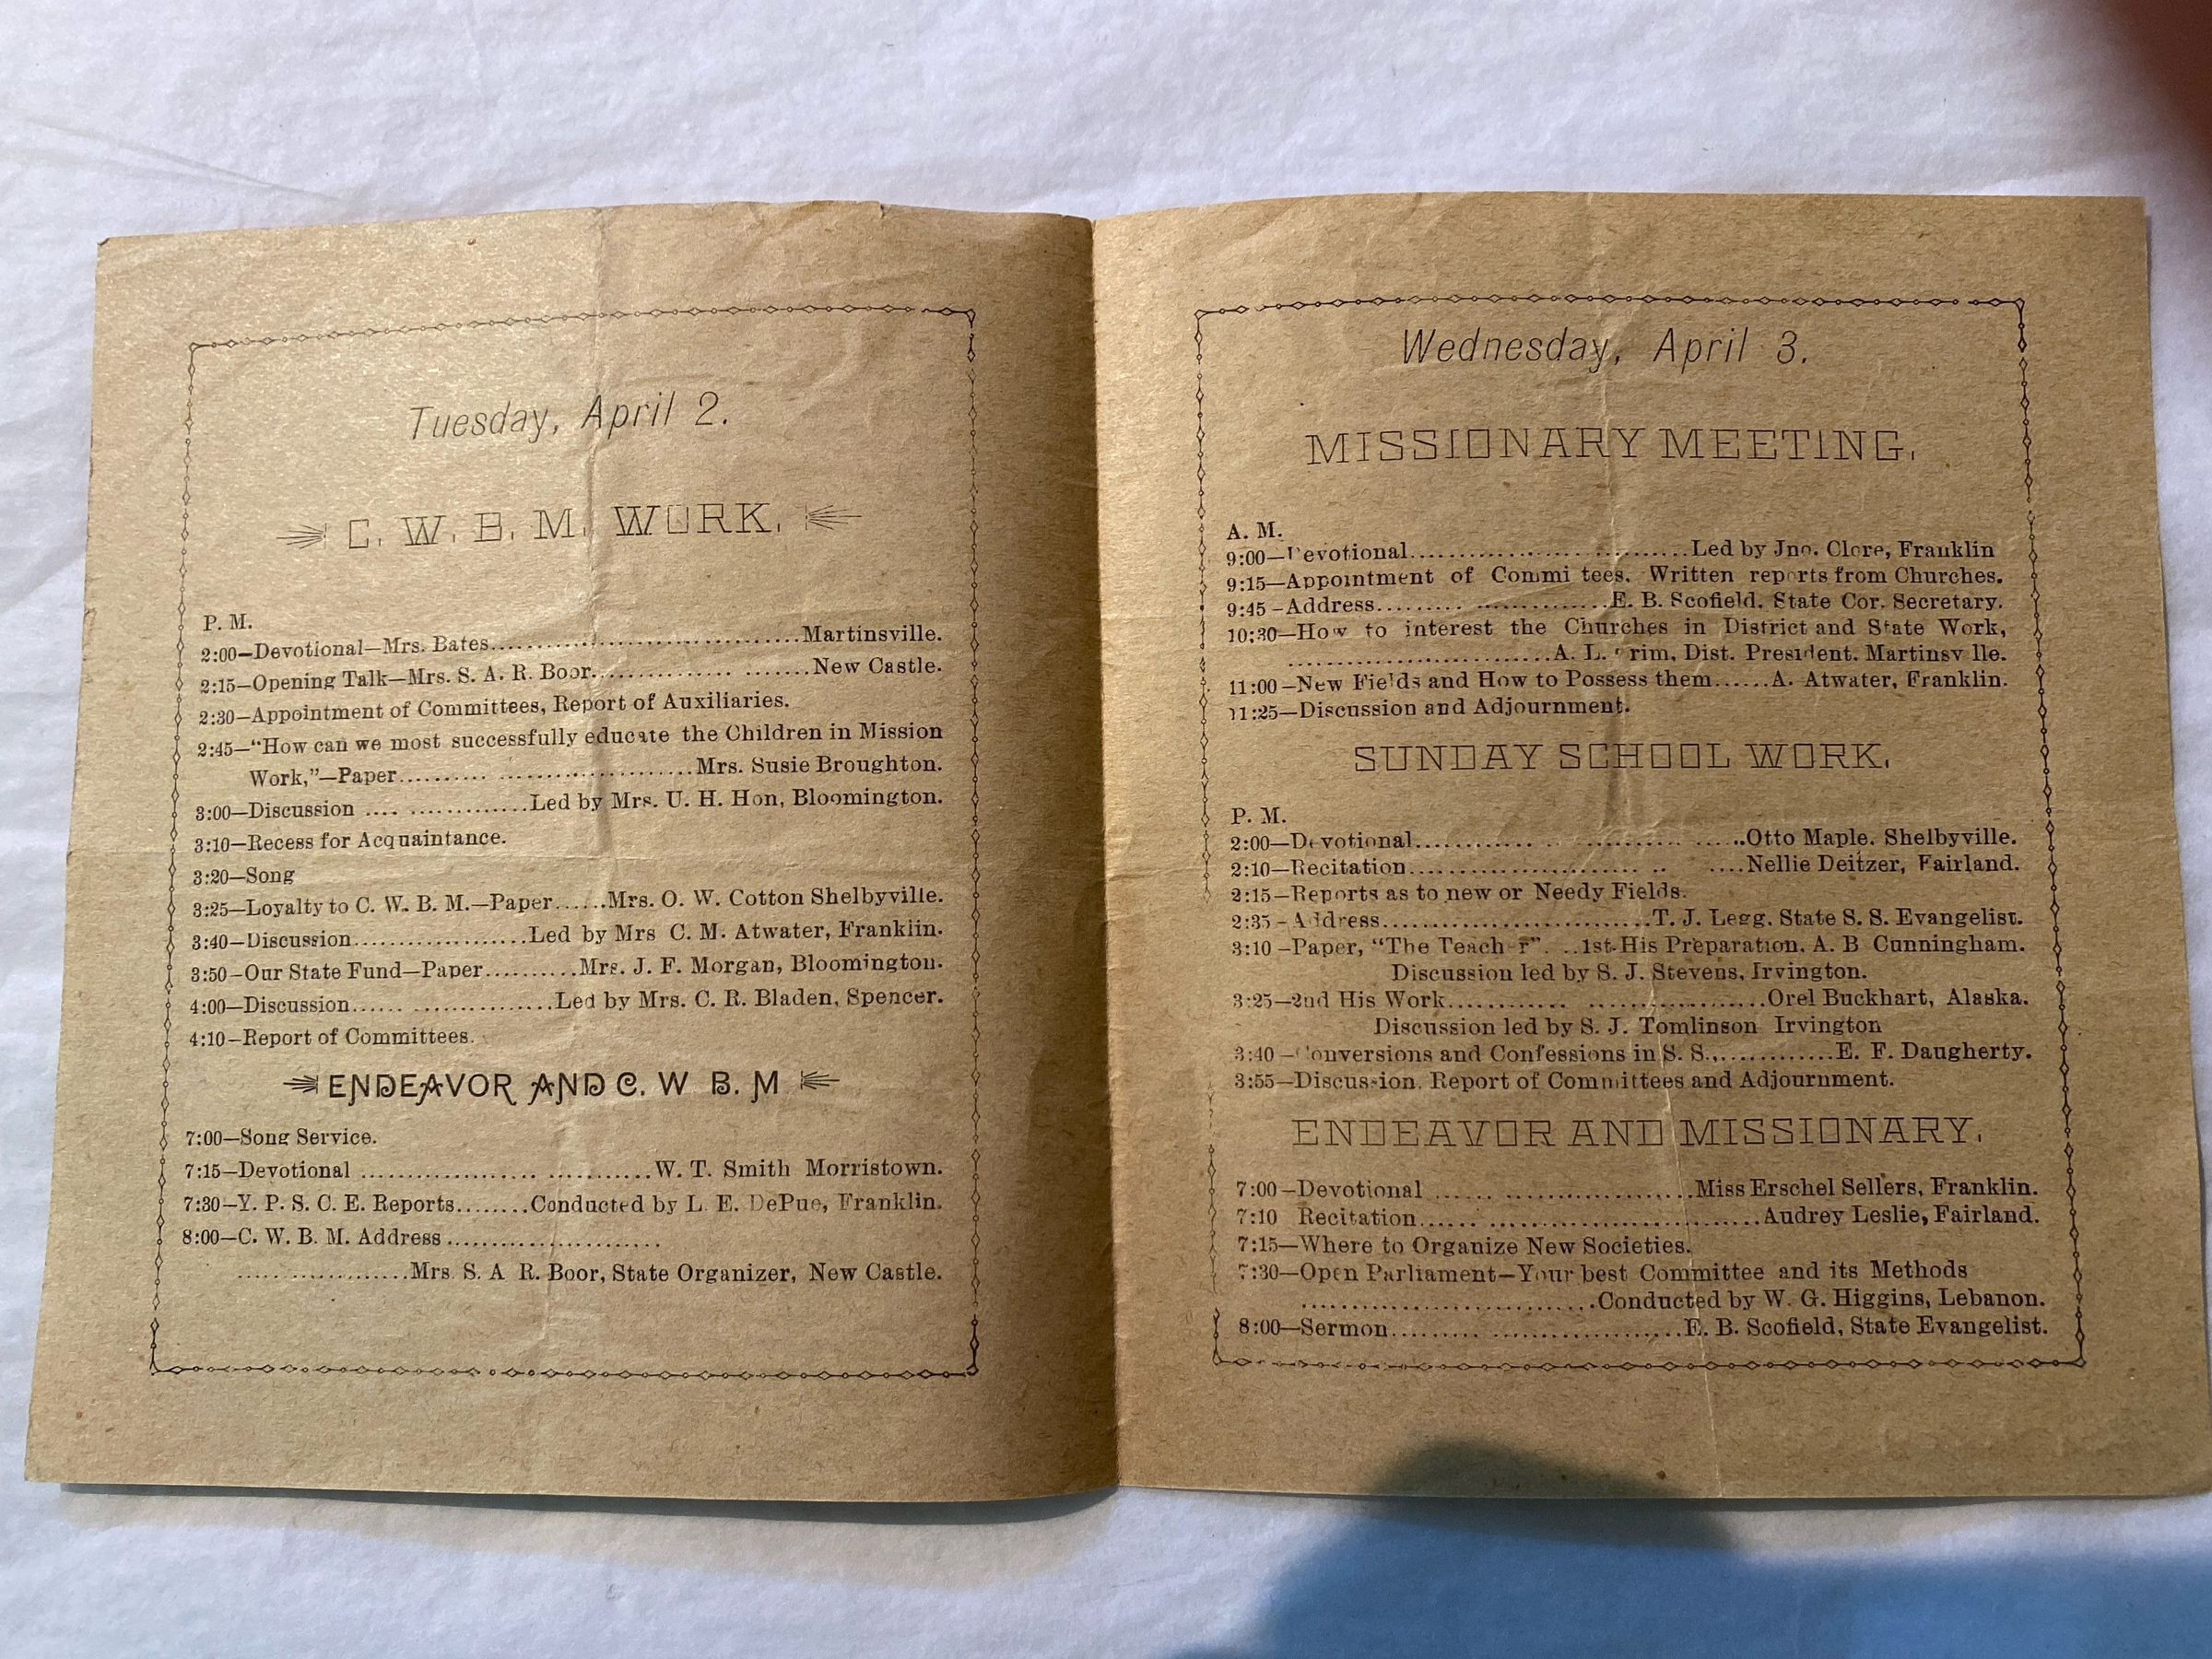 Tuesday, April 2.
C. W. B. M. WORK.
P. M.
2:00—Devotional—Mrs. Bates..................................Martinsville.
2:15—Opening Talk—Mrs. S. A. R. Boor............... .......New Castle.
2:30—Appointment of Committees, Report of Auxiliaries.
2:45—“How can we most successfully educate the Children in Mission
Work,”—Paper.......... ......................Mrs. Susie Broughton.
3:00—Discussion .... .............Led by Mrs. U. H. Hon, Bloomington.
3:10—Recess for Acquaintance.
3:20—Song
3:25—Loyalty to C. W. B. M.—Paper......Mrs. O. W. Cotton Shelbyville.
3:40—Discussion...................Led by Mrs C. M. Atwater, Franklin.
3:50—Our State Fund—Paper..........Mrs. J. F. Morgan, Bloomington.
4:00—Discussion...... ................Led by Mrs. C. R. Bladen, Spencer.
4:10—Report of Committees.
ENDEAVOR AND C. W B. M
7:00—Song Service.
7:15—Devotional .................... ............W. T. Smith Morristown.
7:30—Y. P. S. C. E. Reports........Conducted by L. E. DePue, Franklin.
8:00—C. W. B. M. Address ........................
...... ..............Mrs. S. A R. Boor, State Organizer, New Castle.
Wednesday, April 3.
MISSIONARY MEETING.
A. M.
9:00—Devotional...............................Led by Jno. Clore, Franklin
9:15—Appointment of Commi tees. Written reports from Churches.
9:45—Address......... ..............E. B. Scofield. State Cor. Secretary.
10:30—How to interest the Churches in District and State Work,
.............................A. L. rim, Dist. President. Martinsv lle.
11:00—New Fields and How to Possess them......A. Atwater, Franklin.
11:25—Discussion and Adjournment.
SUNDAY SCHOOL WORK.
P. M.
2:00—Devotional............. .. .......... ......Otto Maple. Shelbyville.
2:10—Recitation......................... .. ....Nellie Deitzer, Fairland.
2:15—Reports as to new or Needy Fields.
2:35-Address.............................T. J. Legg. State S. S. Evangelist.
3:10—Paper, “The Teach r”. ..1st His Preparation. A. B Cunningham.
Discussion led by S. J. Stevens, Irvington.
3:25—2nd His Work............. ....................Orel Buckhart, Alaska.
Discussion led by S. J. Tomlinson Irvington
3:40—Conversions and Confessions in S. S.,............E. F. Daugherty.
3:55—Discussion. Report of Committees and Adjournment.
ENDEAVOR AND MISSIONARY.
7:00—Devotional ...... ....................Miss Erschel Sellers, Franklin.
7:10 Recitation...... .............................Audrey Leslie, Fairland.
7:15—Where to Organize New Societies.
7:30—Open Parliament—Your best Committee and its Methods
................................Conducted by W. G. Higgins, Lebanon.
8:00—Sermon......... .....................E. B. Scofield, State Evangelist.